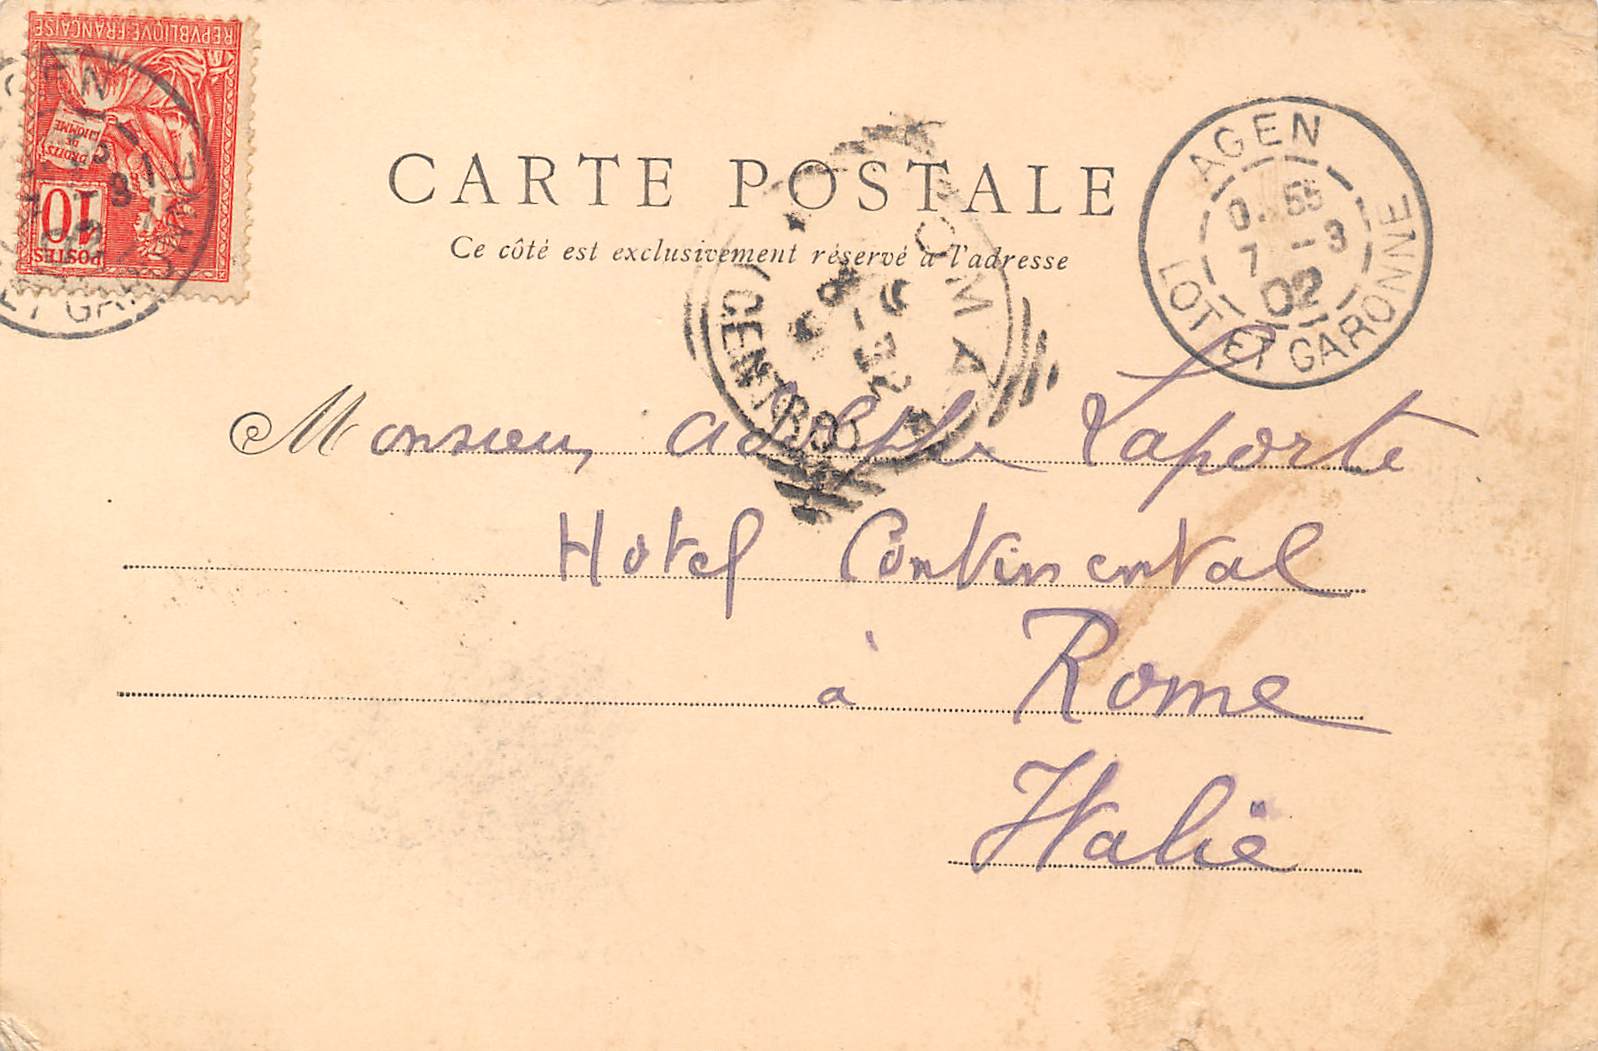 REPVBLIQVE FRANÇAISE
DROITS DE L'HOMME
10
POSTES
AGEN
7 -3
02
LOT ET GARONNE
CARTE POSTALE
Ce côté est exclusivement réservé à l'adresse
ROMA
(CENTRO)
Monsieur Adolphe Laporte
Hotel Continental
à Rome
Italie